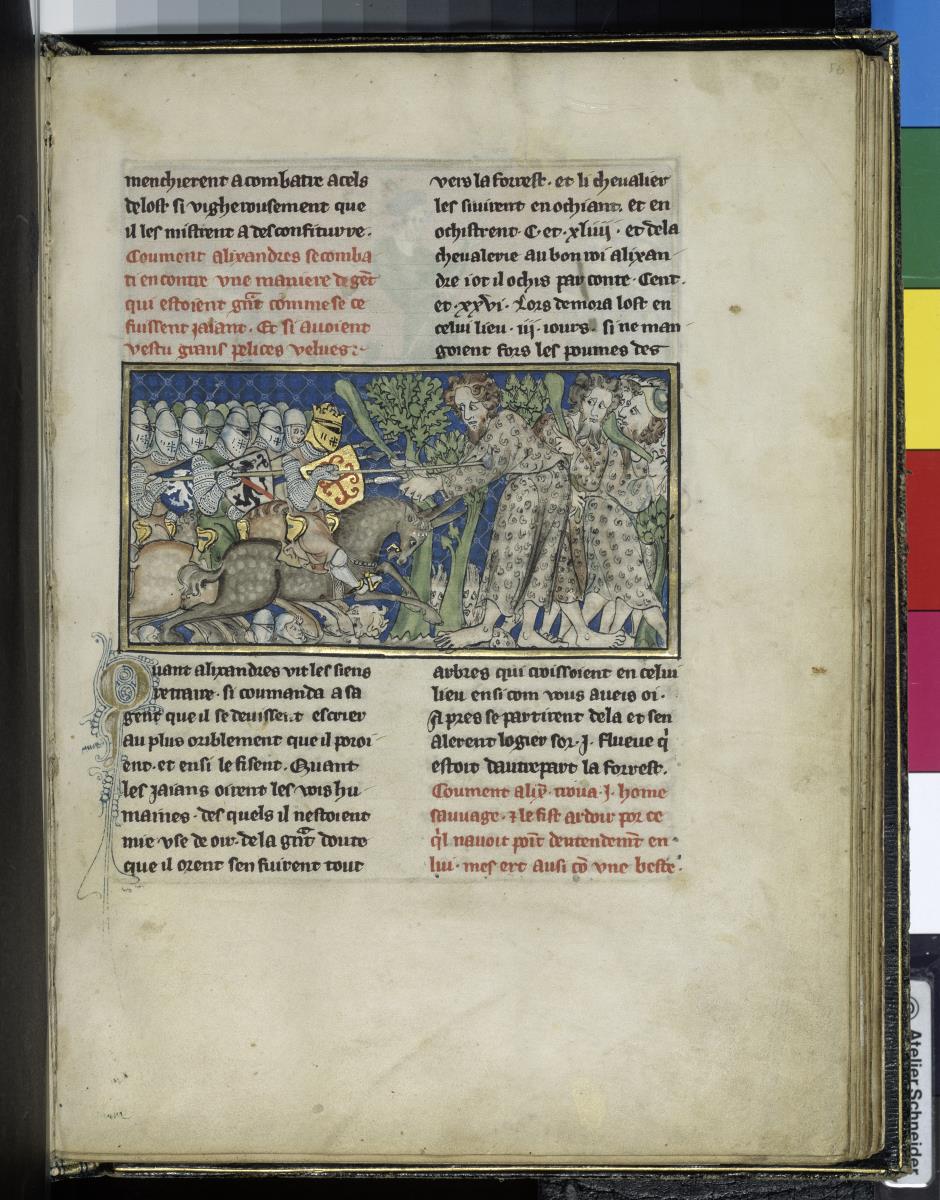 56
menchierent a combatre a cels
delost si vigherousement que
il les mistrent a desconfiture.
Coument alixandres se comba
ti encontre vne maniere de gēt
qui estoient gr̄nt comme se ce
fuissent jaiant. Et si auoient
vestu grans pelices velues:
Quant alixandres vit les siens
retraire. si coumanda a sa
gent que il se deuissent escrier
au plus oriblement que il poroi
ent. et ensi le fisent. Quant
les jaians oirent les vois hu
maines. des quels il nestoient
mie vse de oir. de la gr̄nt doute
que il orent sen fuirent tout
vers la forrest. et li cheualier
les siuirent en ochiant. et en
ochistrent. C. et. xliiij. et de la
cheualerie au bon roi alixan
dre i ot il ochis par conte. Cent.
et. xxvi. Lors demora lost en
celui lieu. iij. iours. si ne man
goient fors les poumes des
arbres qui croissoient en celui
lieu ensi com vous aueis oi.
Apres se partirent dela et sen
alerent logier sor. j. flueue q̄
estoit dautre part la forrest.
Coument alix̄. troua. j. home
sauuage. ⁊ le fist ardoir por ce
q̄l nauoit poīt dentendem̄t en
lui. mes ert ausi cō vne beste.
© Atelier Schneider